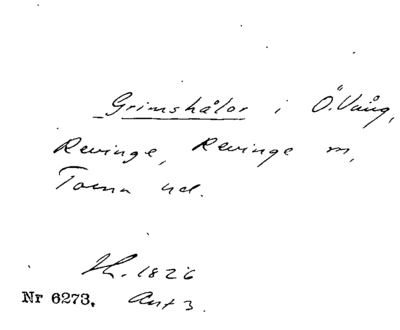 Grimshålor i Ö. Vång,
Revinge, Revinge m,
Torna hd.
Th. 1826
Nr 6273. Ant 3.